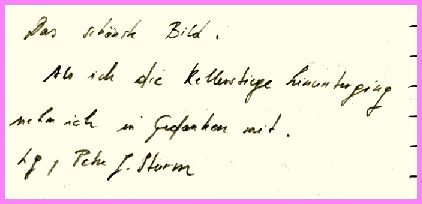 Das schönste Bild.
Als ich die Kellerstiege hinunterging
nehm ich in Gedanken mit.
Lg, Peter J. Sturm